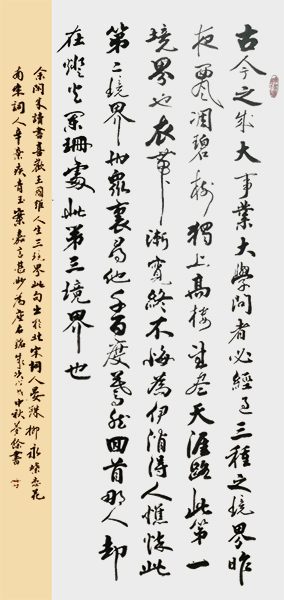 古今之成大事業大學問者必經過三種之境界昨
夜西風凋碧樹獨上高樓望盡天涯路此第一
境界也衣帶漸寬終不悔為伊消得人憔悴此
第二境界也眾裏尋他千百度驀然回首那人卻
在燈火闌珊處此第三境界也
余閑來讀書喜歡王國維人生三境界此句出於北宋詞人晏殊柳永蝶恋花
南宋詞人辛棄疾青玉案嘉言甚妙為座右銘中秋書